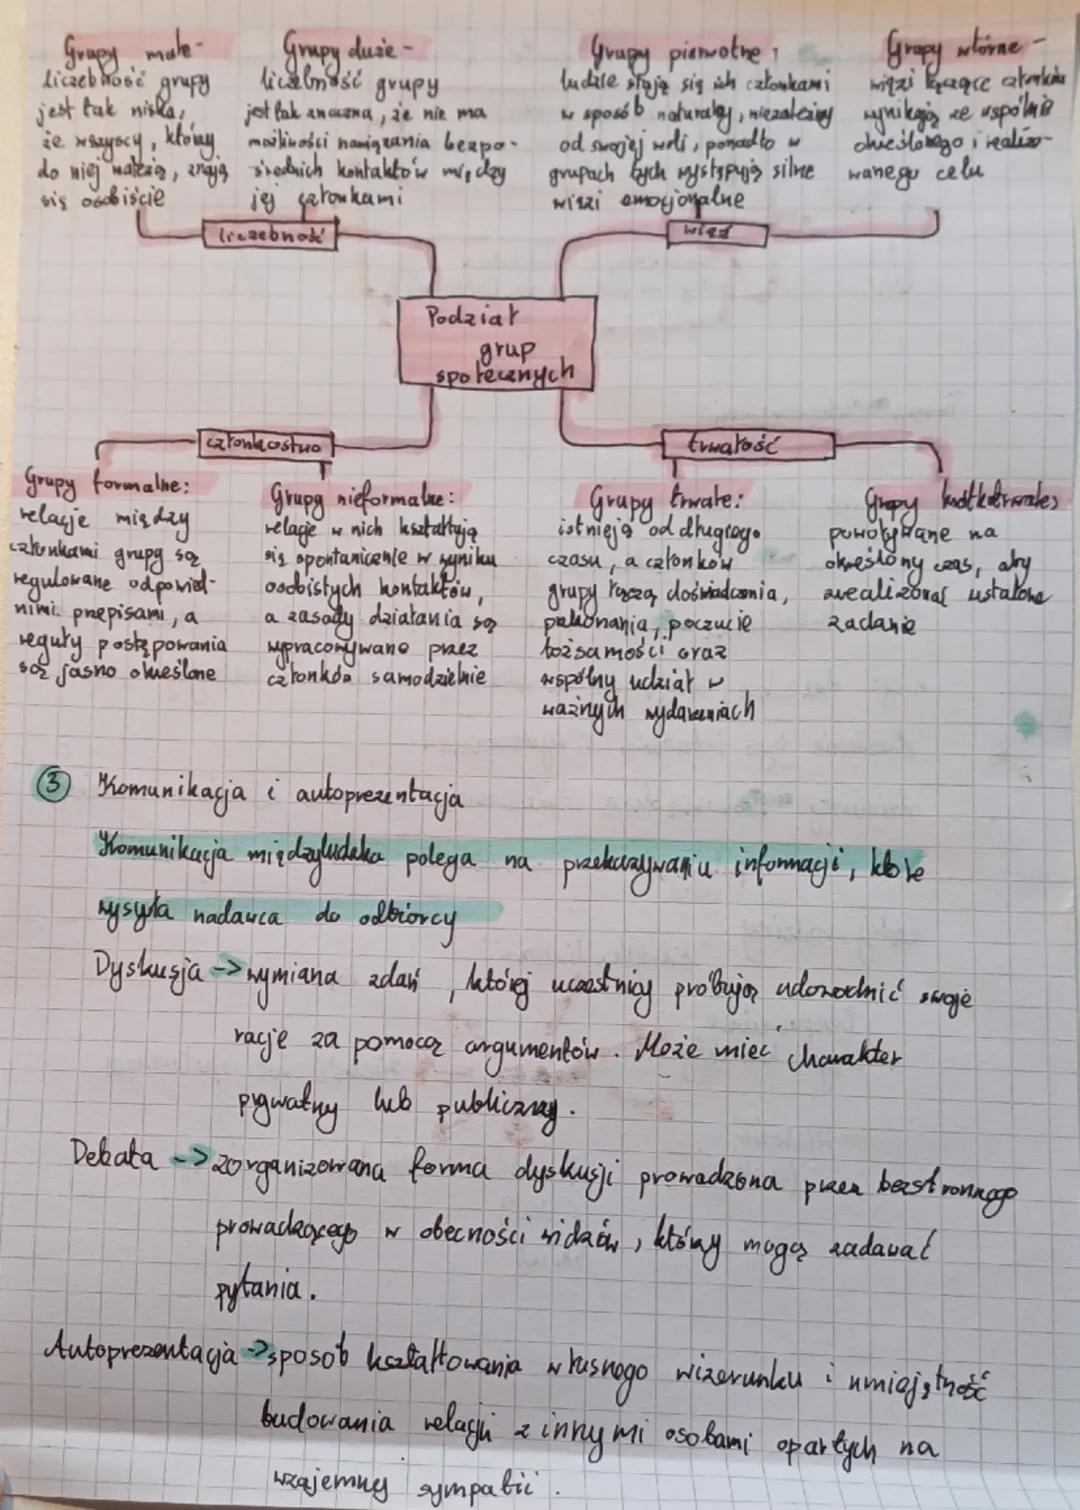 Grupy małe -
liczebność grupy
jest tak niska,
że wszyscy, którzy
do niej należą, znają
się osobiście
Grupy duże -
liczebność grupy
jest tak znaczna, że nie ma
możliwości nawiązania bezpo-
średnich kontaktów między
jej członkami
liczebność
Grupy pierwotne,
ludzie stają się ich członkami
w sposób naturalny, niezależny
od swojej woli, ponadto w
grupach tych występują silne
więzi emocjonalne
Grupy wtórne -
więzi łączące członków
wynikają ze wspólnie
określonego i realizo-
wanego celu
więź
Podział
grup
społecznych
członkostwo
trwałość
Grupy formalne:
relacje między
członkami grupy są
regulowane odpowied-
nimi przepisami, a
reguły postępowania
są jasno określone
Grupy nieformalne:
relacje w nich kształtują
się spontanicznie w wyniku
osobistych kontaktów,
a zasady działania są
wypracowywane przez
członków samodzielnie
Grupy trwałe:
istnieją od długiego
czasu, a członków
grupy łączą doświadczenia,
przekonania, poczucie
tożsamości oraz
wspólny udział w
ważnych wydarzeniach
Grupy krótkotrwałe,
powoływane na
określony czas, aby
zrealizować ustalone
zadanie
3 Komunikacja i autoprezentacja
Komunikacja międzyludzka polega na przekazywaniu informacji, które
wysyła nadawca do odbiorcy
Dyskusja -> wymiana zdań, której uczestnicy próbują udowodnić swoje
racje za pomocą argumentów. Może mieć charakter
prywatny lub publiczny.
Debata -> zorganizowana forma dyskusji prowadzona przez bezstronnego
prowadzącego w obecności widzów, którzy mogą zadawać
pytania.
Autoprezentacja -> sposób kształtowania własnego wizerunku i umiejętność
budowania relacji z innymi osobami opartych na
wzajemnej sympatii.